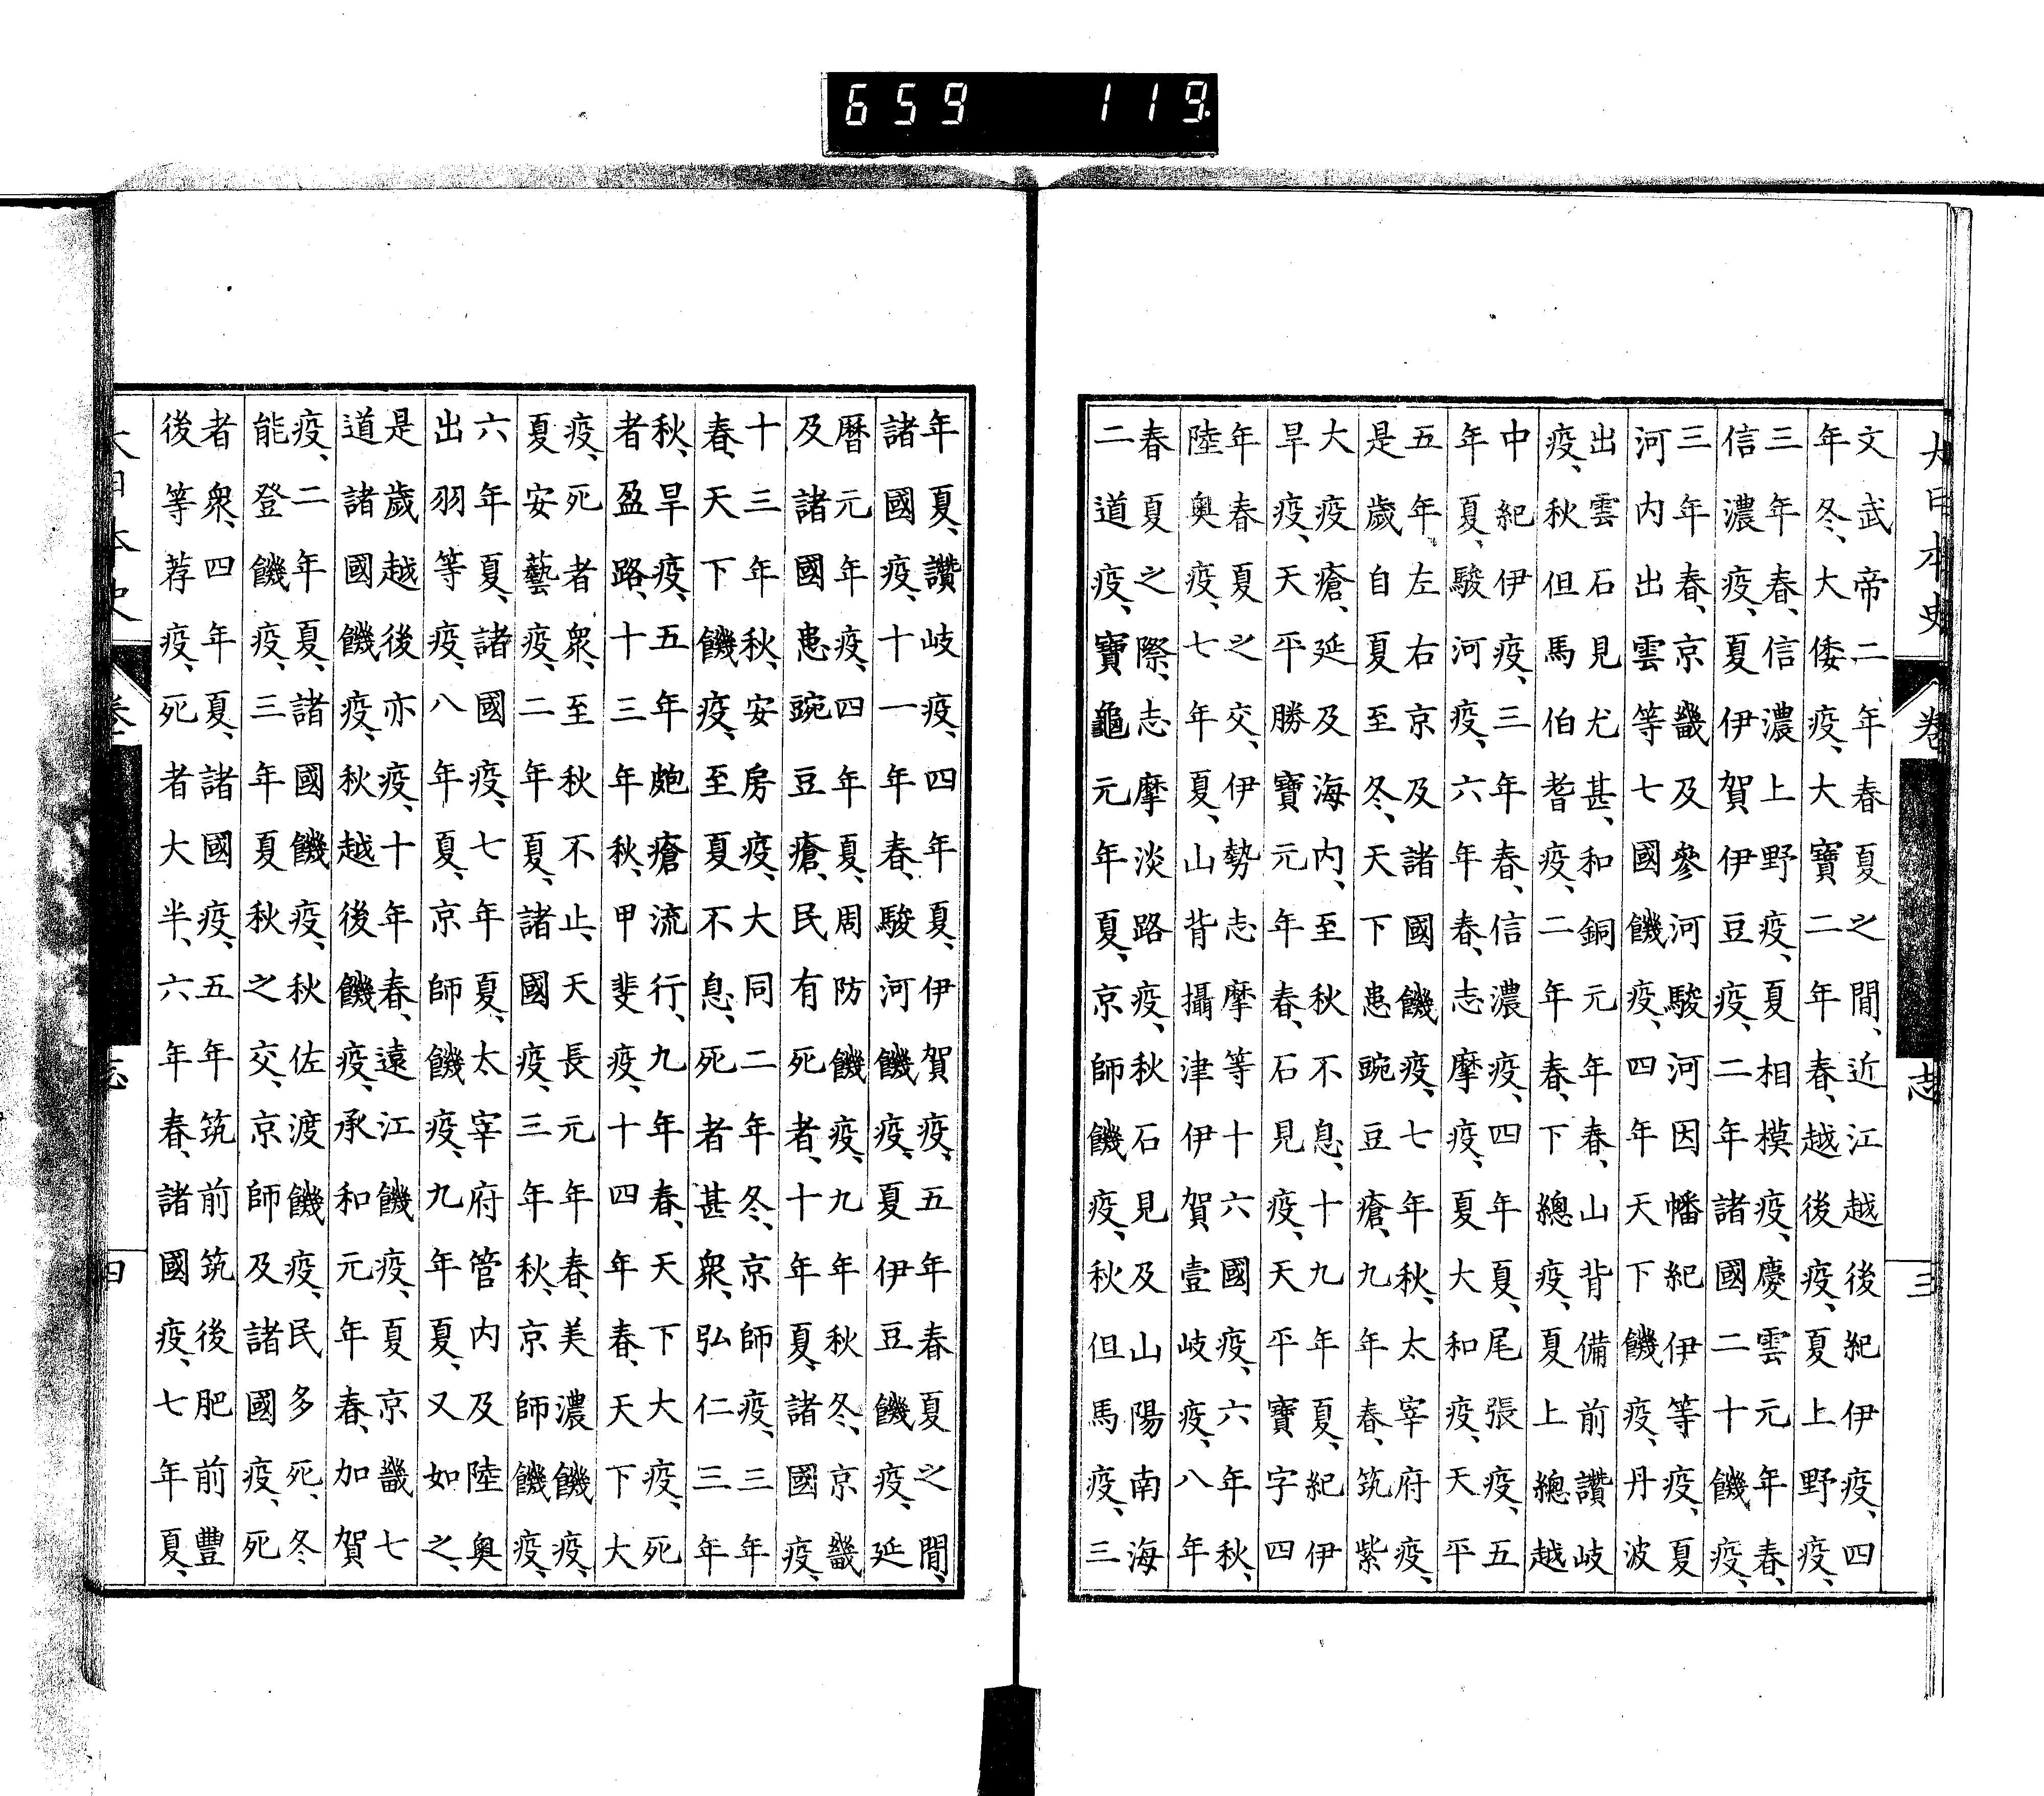 659 119.
大日本史 卷 志 三
文武帝二年春夏之間、近江越後紀伊疫、四
年冬、大倭疫、大寶二年春、越後疫、夏上野疫、
三年春、信濃上野疫、夏相模疫、慶雲元年春、
信濃疫、夏伊賀伊豆疫、二年諸國二十饑疫、
三年春、京畿及參河駿河因幡紀伊等疫、夏
河内出雲等七國饑疫、四年天下饑疫、丹波
出雲石見尤甚、和銅元年春、山背備前讚岐
疫、秋但馬伯耆疫、二年春、下總疫、夏上總越
中紀伊疫、三年春、信濃疫、四年夏、尾張疫、五
年夏、駿河疫、六年春、志摩疫、夏大和疫、天平
五年左右京及諸國饑疫、七年秋、太宰府疫、
是歲自夏至冬、天下患豌豆瘡、九年春、筑紫
大疫瘡、延及海内、至秋不息、十九年夏、紀伊
旱疫、天平勝寶元年春、石見疫、天平寶字四
年春夏之交、伊勢志摩等十六國疫、六年秋、
陸奥疫、七年夏、山背攝津伊賀壹岐疫、八年
春夏之際、志摩淡路疫、秋石見及山陽南海
二道疫、寶龜元年夏、京師饑疫、秋但馬疫、三
年夏、讚岐疫、四年夏、伊賀疫、五年春夏之間、
諸國疫、十一年春、駿河饑疫、夏伊豆饑疫、延
曆元年疫、四年夏、周防饑疫、九年秋冬、京畿
及諸國患豌豆瘡、民有死者、十年夏、諸國疫、
十三年秋、安房疫、大同二年冬、京師疫、三年
春、天下饑疫、至夏不息、死者甚衆、弘仁三年
秋、旱疫、五年皰瘡流行、九年春、天下大疫、死
者盈路、十三年秋、甲斐疫、十四年春、天下大
疫、死者衆、至秋不止、天長元年春、美濃饑疫、
夏安藝疫、二年夏、諸國疫、三年秋、京師饑疫、
六年夏、諸國疫、七年夏、太宰府管内及陸奥
出羽等疫、八年夏、京師饑疫、九年夏、又如之、
是歲越後亦疫、十年春、遠江饑疫、夏京畿七
道諸國饑疫、秋越後饑疫、承和元年春、加賀
疫、二年夏、諸國饑疫、秋佐渡饑疫、民多死、冬
能登饑疫、三年夏秋之交、京師及諸國疫、死
者衆、四年夏、諸國疫、五年筑前筑後肥前豐
後等荐疫、死者大半、六年春、諸國疫、七年夏、
大日本史 卷 志 四